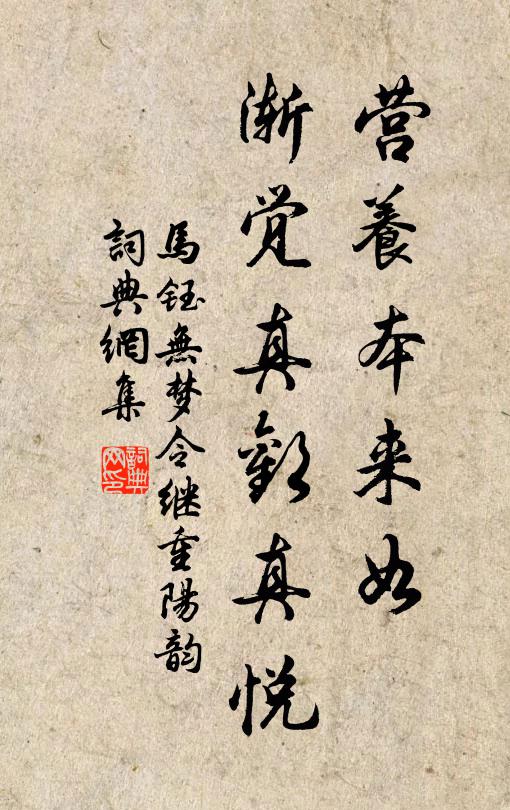 营養本来如
渐觉真歡真悦
馬鈺無梦令继重陽韵
詞典網集
詞典网印